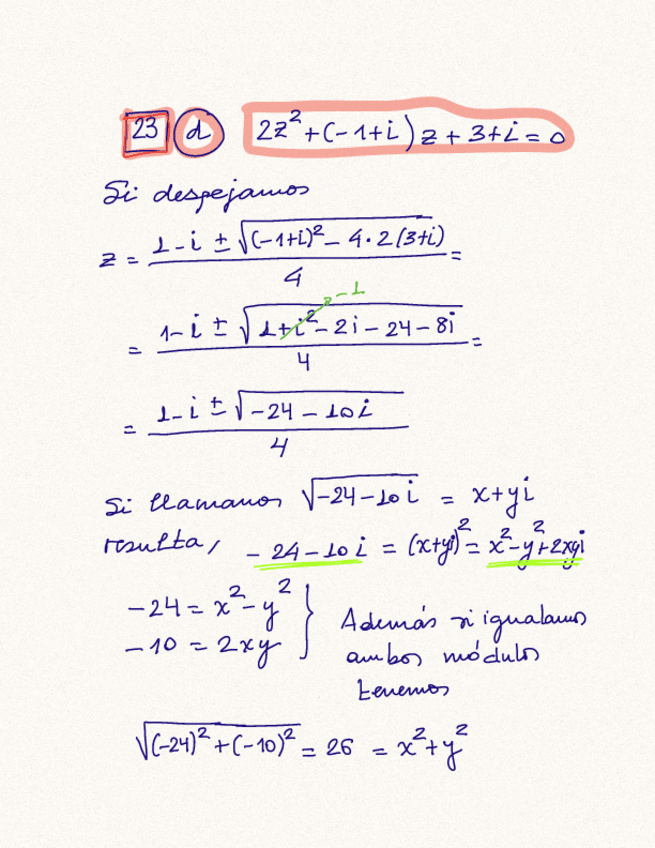 23 d 2z² + (-1+i)z + 3+i = 0
Si despejamos
z = 1-i ± √(-1+i)² - 4·2(3+i) / 4 =
= 1-i ± √1+i² - 2i - 24 - 8i / 4 = -1
= 1-i ± √-24-10i / 4
Si llamamos √-24-10i = x+yi
resulta, -24-10i = (x+yi)² = x²-y²+2xyi
-24 = x²-y² } Además si igualamos
-10 = 2xy ambos módulos
tenemos
√(-24)²+(-10)² = 26 = x²+y²